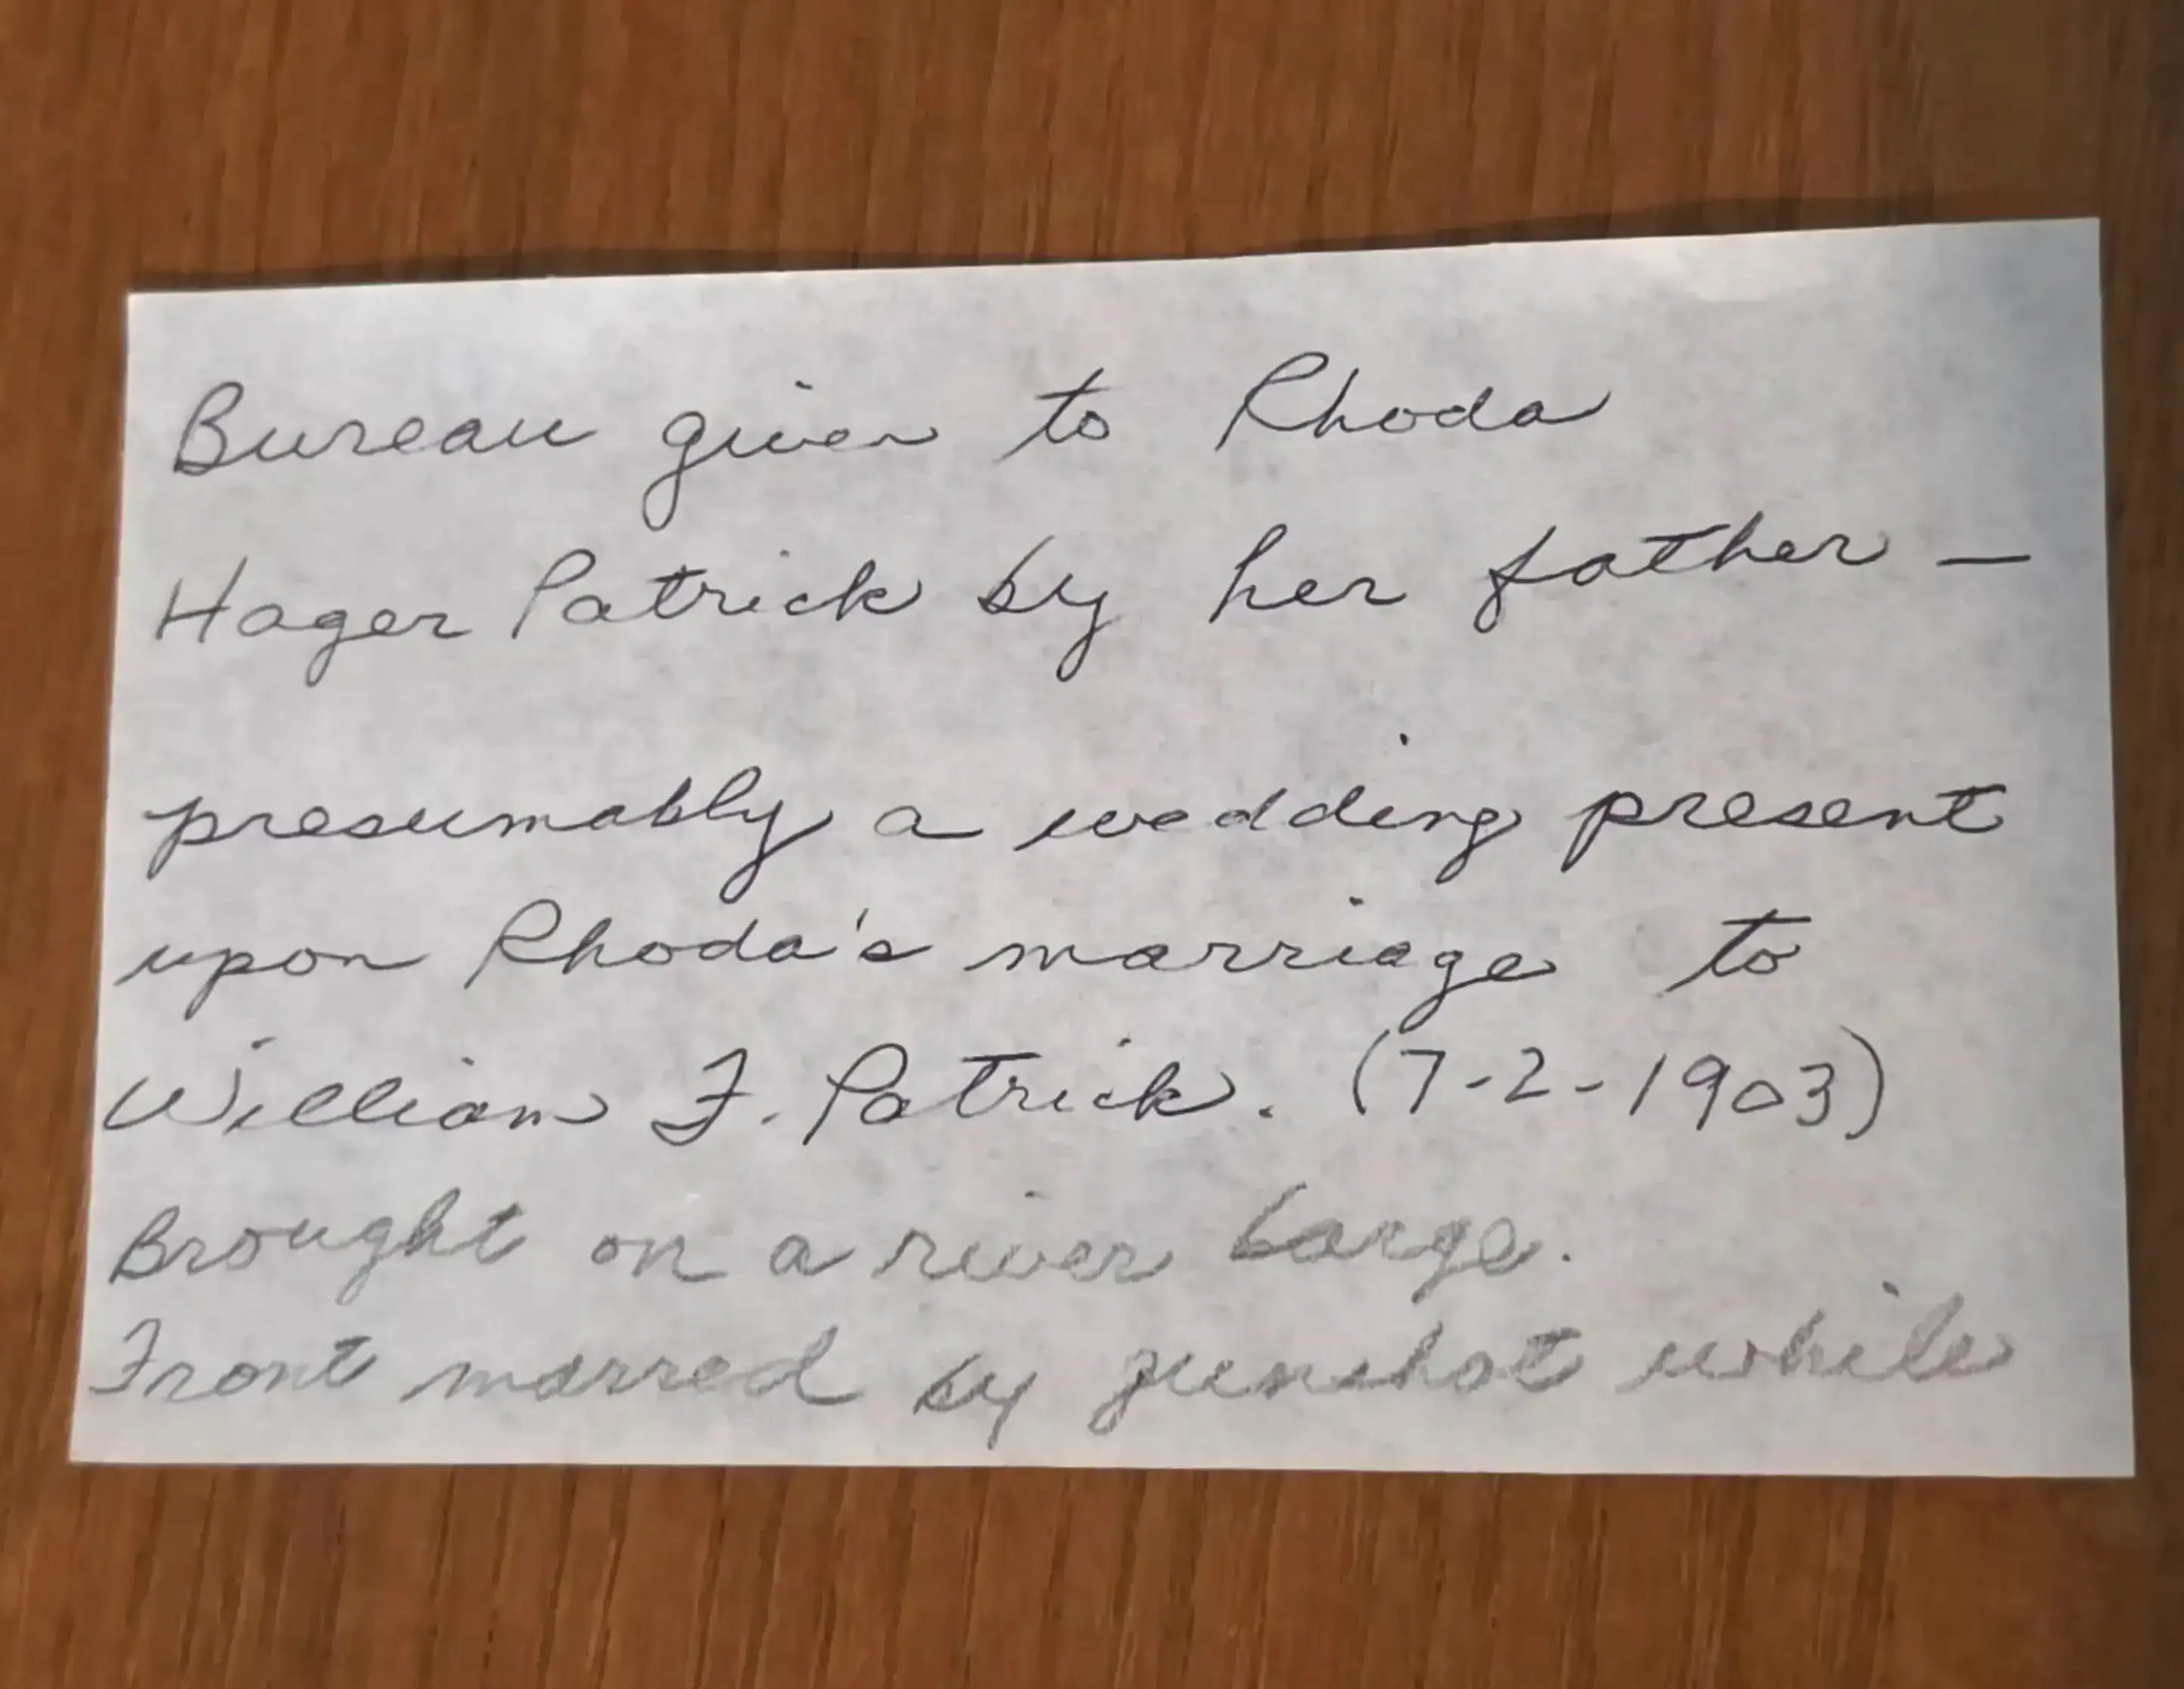 Bureau given to Rhoda
Hager Patrick by her father —
presumably a wedding present
upon Rhoda's marriage to
William F. Patrick. (7-2-1903)
Brought on a river barge.
Front marred by gunshot while